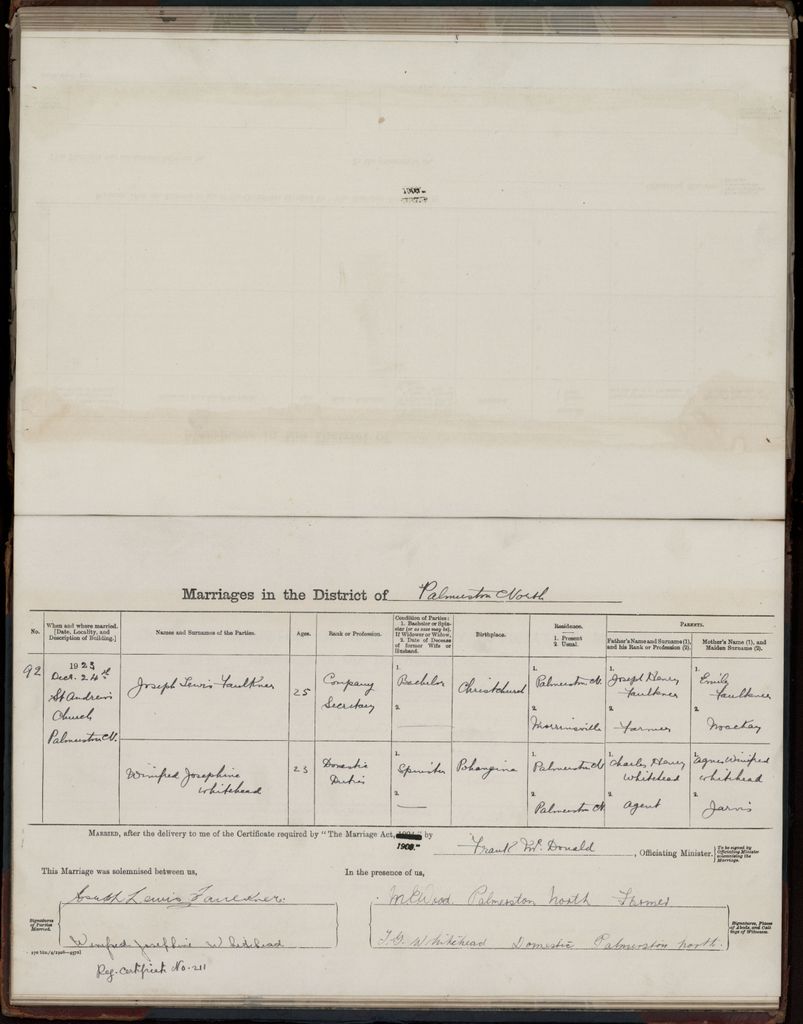 Marriages in the District of Palmerston North
No.
When and where married. [Date, Locality, and Description of Building.]
Names and Surnames of the Parties.
Ages.
Rank or Profession.
Condition of Parties: 1. Bachelor or Spinster (or as case may be). If Widower or Widow, 2. Date of Decease of former Wife or Husband.
Birthplace.
Residence. 1. Present 2. Usual.
Parents.
Father's Name and Surname (1), and his Rank or Profession (2).
Mother's Name (1), and Maiden Surname (2).
92
1923
Decr. 24th
St Andrew's
Church
Palmerston N.
Joseph Lewis Faulkner
25
Company
Secretary
1.
Bachelor
2.
Christchurch
1.
Palmerston N.
2.
Morrinsville
1.
Joseph Henry
Faulkner
2.
Farmer
1.
Emily
Faulkner
2.
Mackay
Winifred Josephine
Whitehead
23
Domestic
Duties
1.
Spinster
2.
Pohangina
1.
Palmerston N
2.
Palmerston N
1.
Charles Henry
Whitehead
2.
Agent
1.
Agnes Winifred
Whitehead
2.
Jarvis
Married, after the delivery to me of the Certificate required by "The Marriage Act, 1908," by
Frank McDonald, Officiating Minister. [To be signed by Officiating Minister solemnizing the Marriage.
This Marriage was solemnised between us,
In the presence of us,
Signatures of Parties Married.
Joseph Lewis Faulkner.
Winifred Josephine Whitehead
Palmerston North Farmer
Whitehead Domestic Palmerston North.
Signatures, Places of Abode, and Callings of Witnesses.
Reg. Certificate No. 211